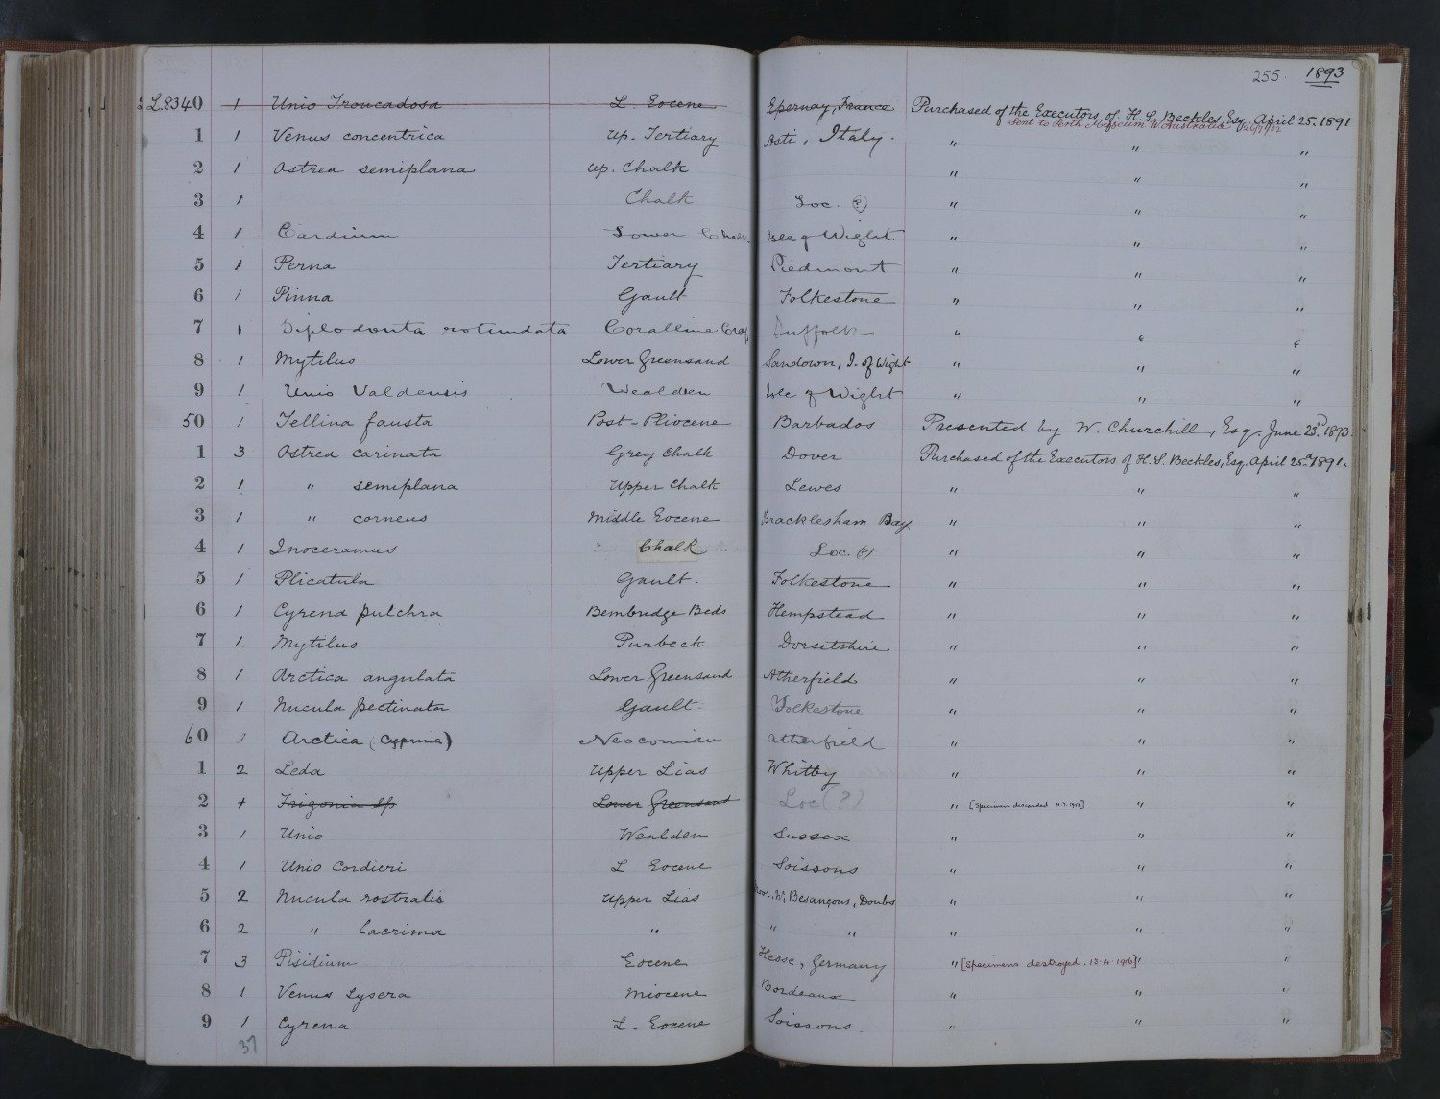 255. 1893
L.8340 1 Unio Troncadosa L. Eocene Epernay, France Purchased of the Executors of H. S. Beckles, Esq. April 25. 1891
Sent to Perth Museum W. Australia
1 1 Venus concentrica Up. Tertiary Asti, Italy. " " "
2 1 Ostrea semiplana Up. Chalk " " "
3 1 Chalk Loc. (?) " " "
4 1 Cardium Lower Chalk Isle of Wight " " "
5 1 Perna Tertiary Piedmont " " "
6 1 Pinna Gault Folkestone " " "
7 1 Diplodonta rotundata Coralline Crag Suffolk " " "
8 1 Mytilus Lower Greensand Sandown, I. of Wight " " "
9 1 Unio Valdensis Wealden Isle of Wight " " "
50 1 Tellina fausta Post-Pliocene Barbados Presented by W. Churchill, Esq. June 23d. 1893.
1 3 Ostrea carinata Grey Chalk Dover Purchased of the Executors of H. S. Beckles, Esq. April 25. 1891.
2 1 " semiplana Upper Chalk Lewes " " "
3 1 " corneus Middle Eocene Bracklesham Bay " " "
4 1 Inoceramus Chalk Loc. (?) " " "
5 1 Plicatula Gault. Folkestone " " "
6 1 Cyrena pulchra Bembridge Beds Hempstead " " "
7 1 Mytilus Purbeck Dorsetshire " " "
8 1 Arctica angulata Lower Greensand Atherfield " " "
9 1 Nucula pectinata Gault Folkestone " " "
60 1 Arctica (Cyprina) Neocomian Atherfield " " "
1 2 Leda Upper Lias Whitby " " "
2 1 Trigonia sp Lower Greensand Loc (?) " [Specimen discarded " "
3 1 Unio Wealden Sussex " " "
4 1 Unio Cordieri L. Eocene Soissons " " "
5 2 Nucula rostralis Upper Lias W. Besançons, Doubs " " "
6 2 " lacrima " " " " " "
7 3 Pisidium Eocene Hesse, Germany " [Specimens destroyed. 13.4.1916] " "
8 1 Venus Lysera Miocene Bordeaux " " "
9 1 Cyrena L. Eocene Soissons. " " "
37